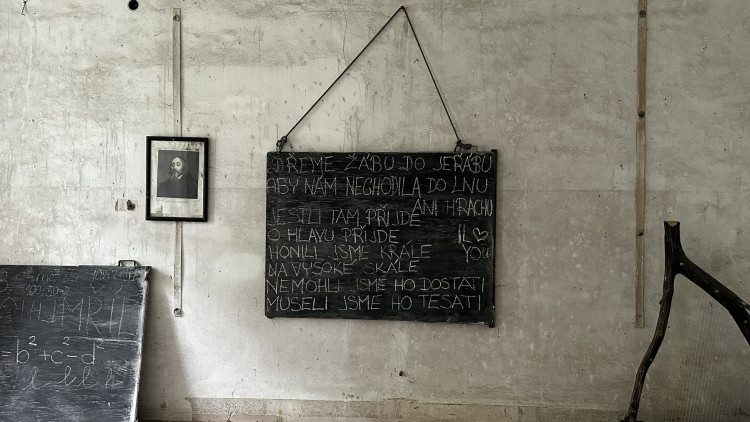 DŘEME ŽÁBU DO JEŘÁBU
ABY NÁM NECHODILA DO LNU
ANI HRACHU
JESTLI TAM PŘIJDE
O HLAVU PŘIJDE
HONILI JSME KRÁLE
NA VYSOKÉ SKÁLE
NEMOHLI JSME HO DOSTATI
MUSELI JSME HO TESATI
I L♡
YOU
-b²+c²-d²